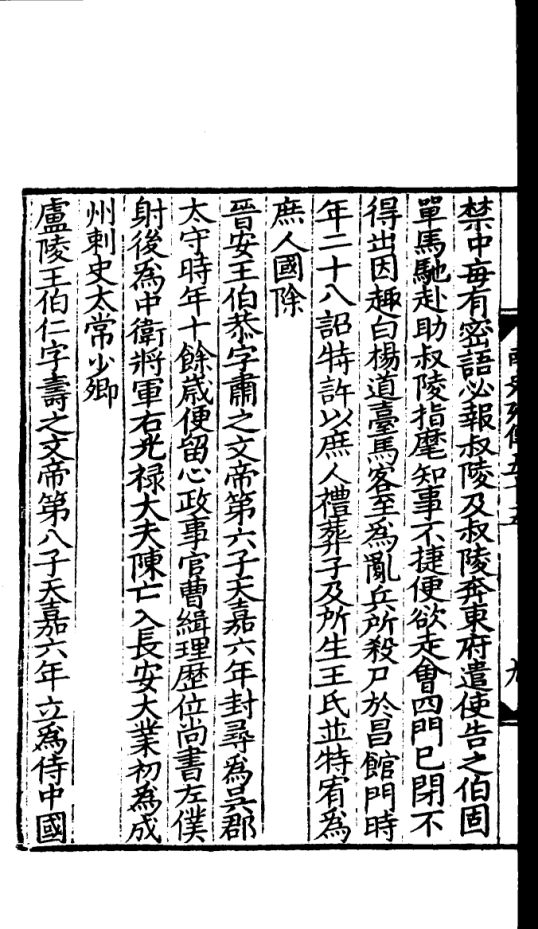 禁中每有密語必報叔陵及叔陵奔東府遣使告之伯固
單馬馳赴助叔陵指麾知事不捷便欲走會四門巳閉不
得出因趣白楊道臺馬客至爲亂兵所殺尸於昌館門時
年二十八詔特許以庶人禮葬子及所生王氏並特宥爲
庶人國除
晉安王伯恭字肅之文帝第六子天嘉六年封尋爲吳郡
太守時年十餘歲便留心政事官曹緝理歷位尚書左僕
射後爲中衛將軍右光禄大夫陳亡入長安大業初爲成
州刺史太常少卿
盧陵王伯仁字壽之文帝第八子天嘉六年立爲侍中國